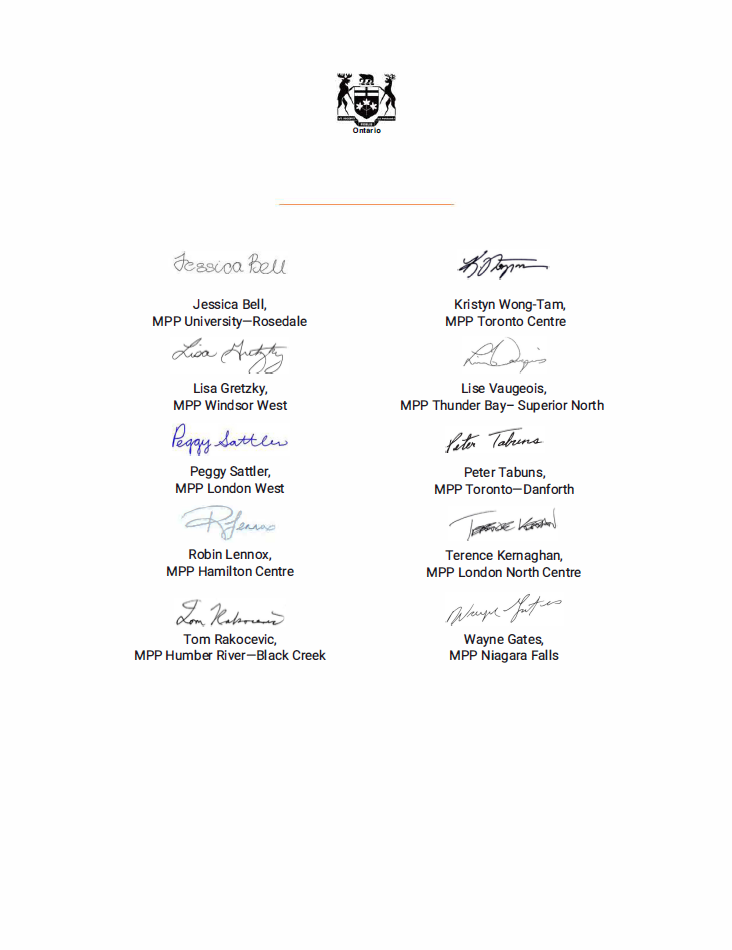 Ontario
Jessica Bell
Jessica Bell,
MPP University—Rosedale
Kristyn Wong-Tam,
MPP Toronto Centre
Lisa Gretzky
Lisa Gretzky,
MPP Windsor West
Lise Vaugeois,
MPP Thunder Bay– Superior North
Peggy Sattler
Peggy Sattler,
MPP London West
Peter Tabuns
Peter Tabuns,
MPP Toronto—Danforth
RJennox
Robin Lennox,
MPP Hamilton Centre
Terence Kernaghan,
MPP London North Centre
Tom Rakocevic
Tom Rakocevic,
MPP Humber River—Black Creek
Wayne Gates
Wayne Gates,
MPP Niagara Falls